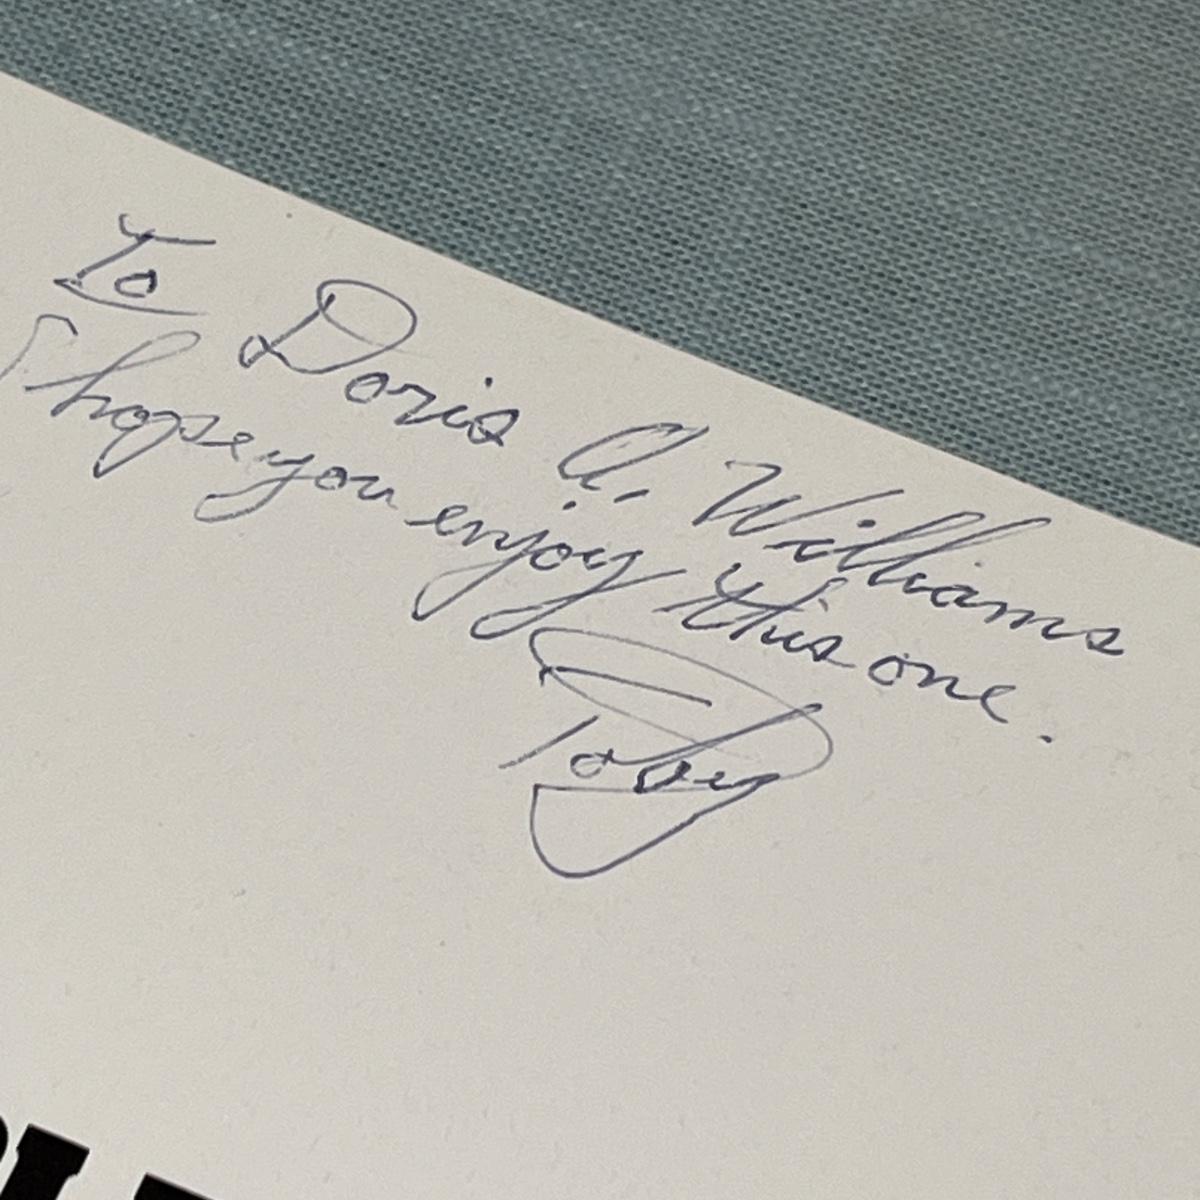 To Doris A. Williams
I hope you enjoy this one.
Toby